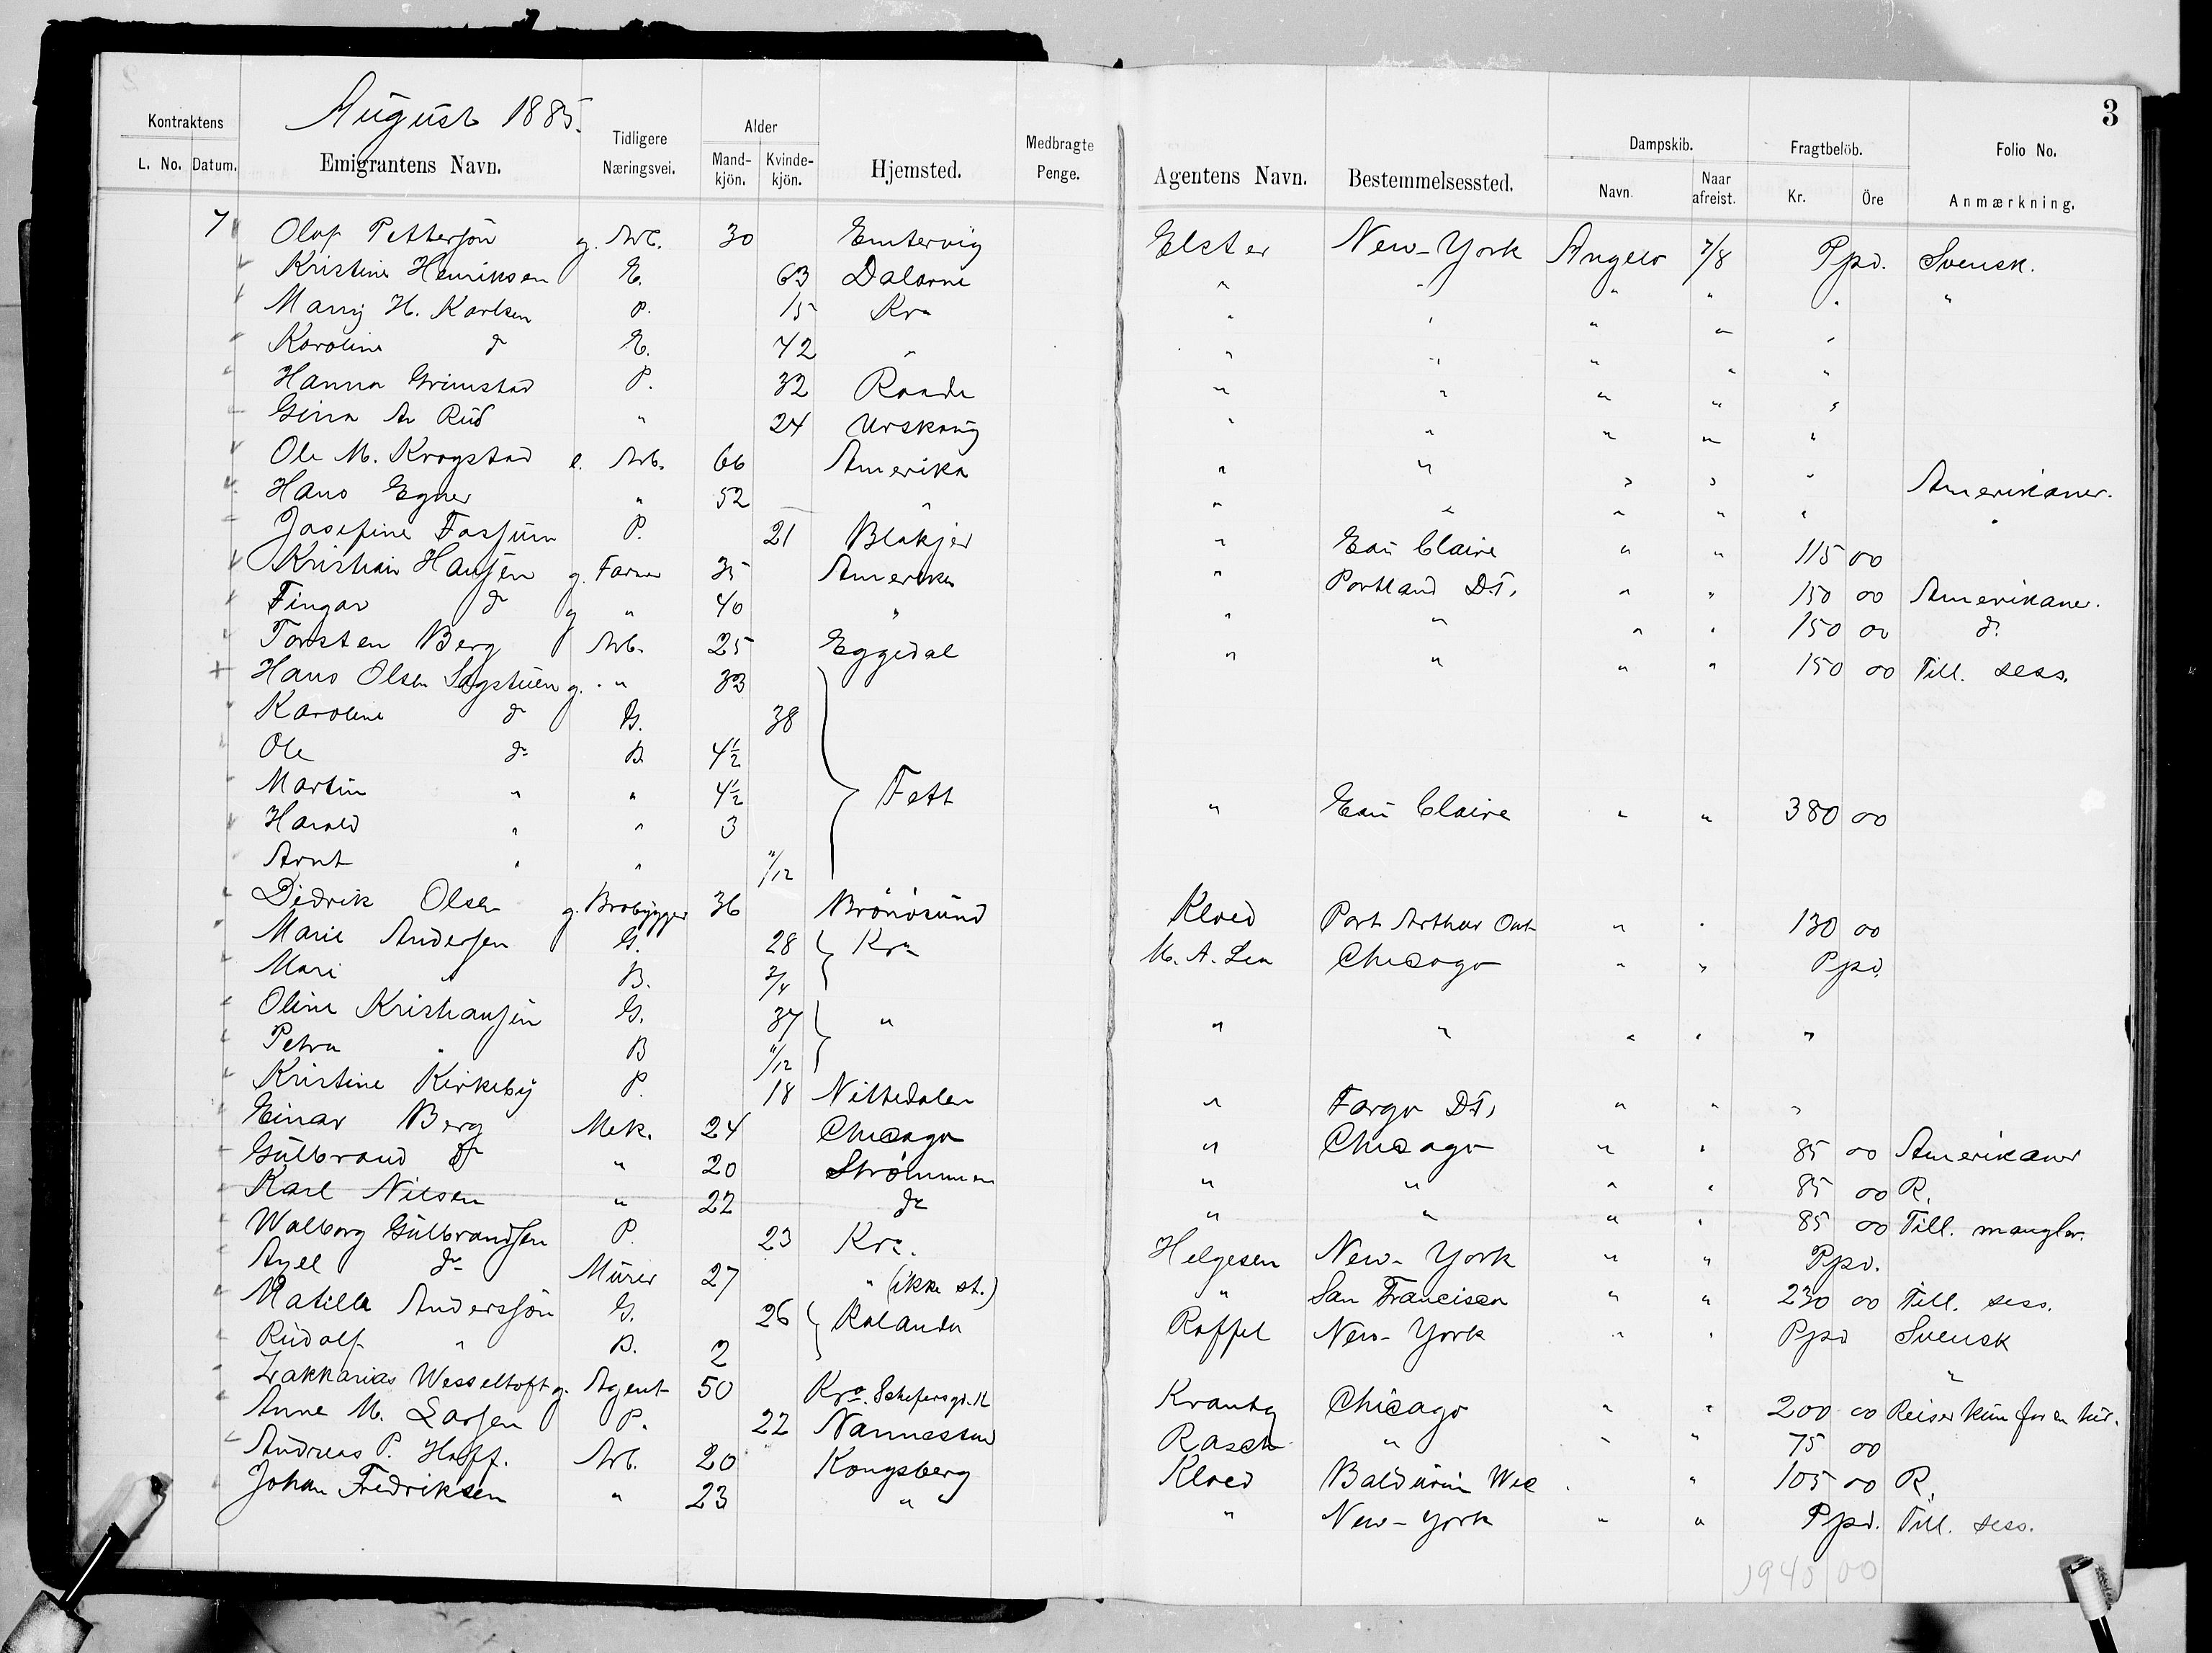 3
August 1885.
Kontraktens Emigrantens Navn. Tidligere Næringsvei. Alder Hjemsted. Medbragte Penge. Agentens Navn. Bestemmelsessted. Dampskib. Fragtbelöb. Folio No.
L. No. Datum. Mand-kjön. Kvinde-kjön. Navn. Naar afreist. Kr. Öre Anmærkning.
7 Olof Pettersön g. Arb. 30 Emtervig Elster New-York Angelo 7/8 Ppd. Svensk.
Kristine Henriksen E. 63 Dalarne " " " " " "
Marry H. Karlsen P. 15 Kra " " " " "
Karoline do E. 42 " " " " " "
Hanna Grimstad P. 32 Raade " " " " "
Gina A. Rud " 24 Urskoug " " " " "
Ole M. Krogstad e. Arb. 66 Amerika " " " " " Amerikaner.
Hans Egner " 52 " " " " " " "
Josefine Fossum P. 21 Blakjer " Eau Claire " " 115 00
Kristian Hansen g. Farmer 35 Amerika " Portland D.T. " " 150 00 Amerikaner.
Fingar do g " 40 " " " " " 150 00 do
Torsten Berg Arb. 25 Eggedal " " " " 150 00 Till. sess.
Hans Olsen Sagstuen g. " 33
Karoline do G. 38
Ole do B. 4½
Martin " " 4½ Fett " Eau Claire " " 380 00
Harald " " 3
Arnt " " 11/12
Didrik Olsen g. Brobygger 36 Brönösund Kloed Port Arthur Ont " " 130 00
Marie Andersen G. 28 Kra M. A. Lea Chicago " " Ppd.
Mari B. 3/4
Oline Kristiansen G. 37 " " " " " "
Petra " B 11/12
Kristine Kirkeby P. 18 Nittedalen " Fargo D.T. " " "
Einar Berg Mek. 24 Chicago " Chicago " " 85 00 Amerikaner
Gulbrand do " 20 Strömmen " " " " 85 00 R.
Karl Nilsen " 22 do " " " " 85 00 Till. mangler.
Walborg Gulbrandsen P. 23 Kra. Helgesen New-York " " Ppd.
Axel do Murer 27 " (ikke st.) " San Francisco " " 230 00 Till. sess.
Matilda Anderssön G. 26 Rolanda Roffel New-York " " Ppd Svensk
Rudolf " B. 2 "
Zakkarias Wesseltoft g. Agent 50 Kra. Schefersgd. 11 Krantz Chicago " " 200 00 Reiser kun for en tur.
Anne M. Larsen P. 22 Nannestad Rasch " " " 75 00
Andreas P. Hoff. Arb. 20 Kongsberg Kloed Balduin Wis " " 105 00 R.
Johan Fredriksen " 23 " " New-York " " Ppd. Till. sess.
1945 00